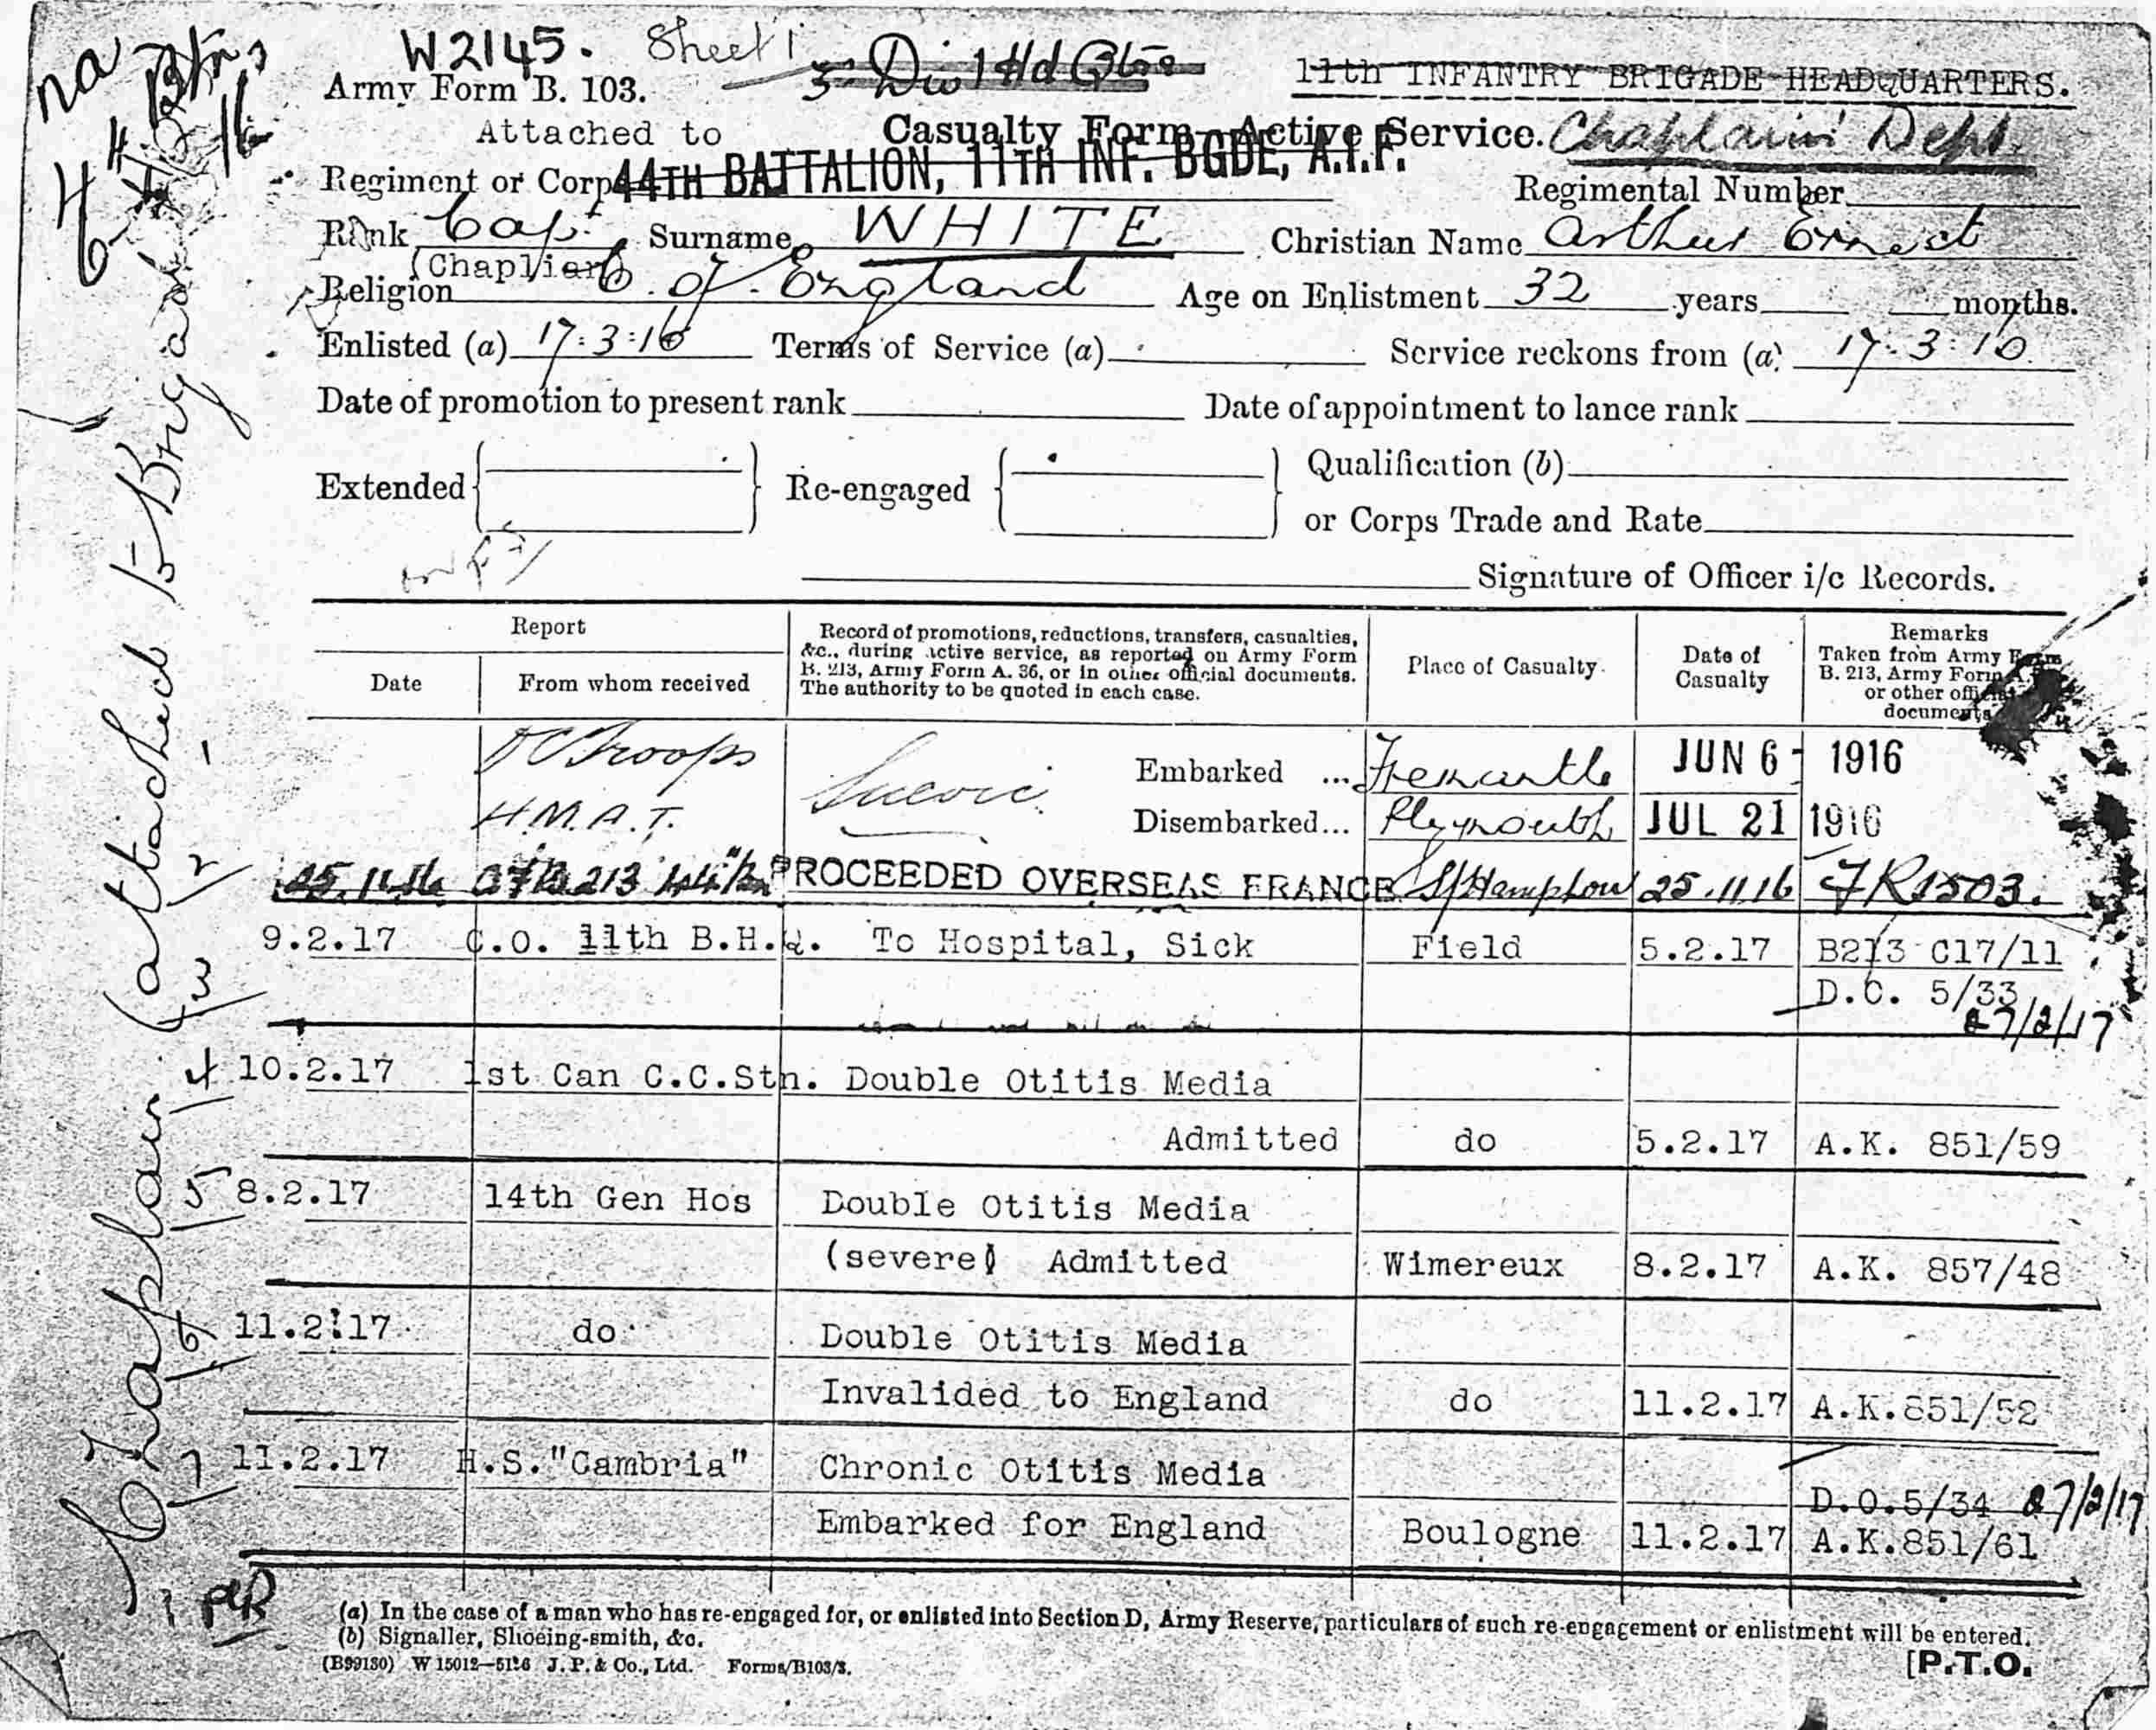 W2145. Sheet 1
3 Div Hd Qtrs
11th INFANTRY BRIGADE HEADQUARTERS.
Army Form B. 103.
Attached to
Casualty Form—Active Service. Chaplains Dept.
Regiment or Corps 44TH BATTALION, 11TH INF. BGDE, A.I.F.
Regimental Number
Rank Cap. Surname WHITE Christian Name Arthur Ernest
(Chaplian
Religion C. of England Age on Enlistment 32 years months.
Enlisted (a) 17:3:16 Terms of Service (a) Service reckons from (a) 17:3:16
Date of promotion to present rank Date of appointment to lance rank
Extended Re-engaged Qualification (b)
or Corps Trade and Rate
Signature of Officer i/c Records.
Report
Date From whom received
Record of promotions, reductions, transfers, casualties, &c., during active service, as reported on Army Form B. 213, Army Form A. 36, or in other official documents. The authority to be quoted in each case.
Place of Casualty.
Date of Casualty
Remarks
Taken from Army Form B. 213, Army Form A. or other official documents
O C Troops Suevic Embarked ... Fremantle JUN 6- 1916
H.M.A.T. Disembarked... Plymouth JUL 21 1916
25.11.16 AFB 213 44th Bn PROCEEDED OVERSEAS FRANCE S/Hampton 25.11.16 FR1503.
9.2.17 C.O. 11th B.H.Q. To Hospital, Sick Field 5.2.17 B213 C17/11
D.C. 5/33
27/2/17
4 10.2.17 1st Can C.C.Stn. Double Otitis Media
Admitted do 5.2.17 A.K. 851/59
5 8.2.17 14th Gen Hos Double Otitis Media
(severe) Admitted Wimereux 8.2.17 A.K. 857/48
6 11.2.17 do Double Otitis Media
Invalided to England do 11.2.17 A.K.851/52
7 11.2.17 H.S."Cambria" Chronic Otitis Media
D.O.5/34 27/2/17
Embarked for England Boulogne 11.2.17 A.K.851/61
(a) In the case of a man who has re-engaged for, or enlisted into Section D, Army Reserve, particulars of such re-engagement or enlistment will be entered.
(b) Signaller, Shoeing-smith, &c.
(B99130) W 15012—5126 J. P. & Co., Ltd. Forms/B103/3.
[P.T.O.
Chaplain (attached to Brigade